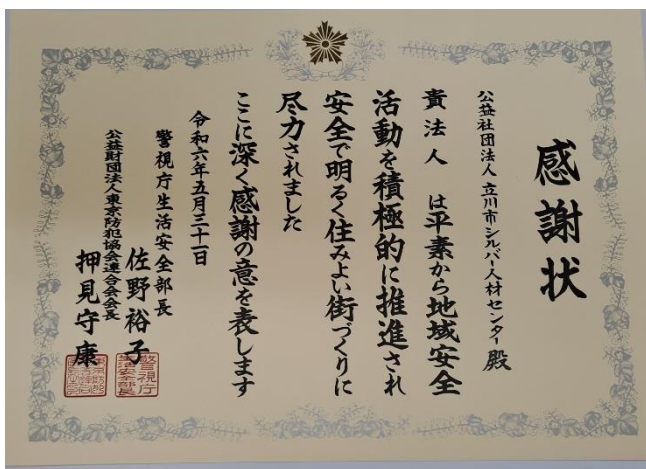 感謝状
公益社団法人 立川市シルバー人材センター 殿
貴法人 は平素から地域安全
活動を積極的に推進され
安全で明るく住みよい街づくりに
尽力されました
ここに深く感謝の意を表します
令和六年五月三十一日
警視庁生活安全部長
佐野裕子
公益財団法人東京防犯協会連合会会長
押見守康
警視庁
生活安全部長